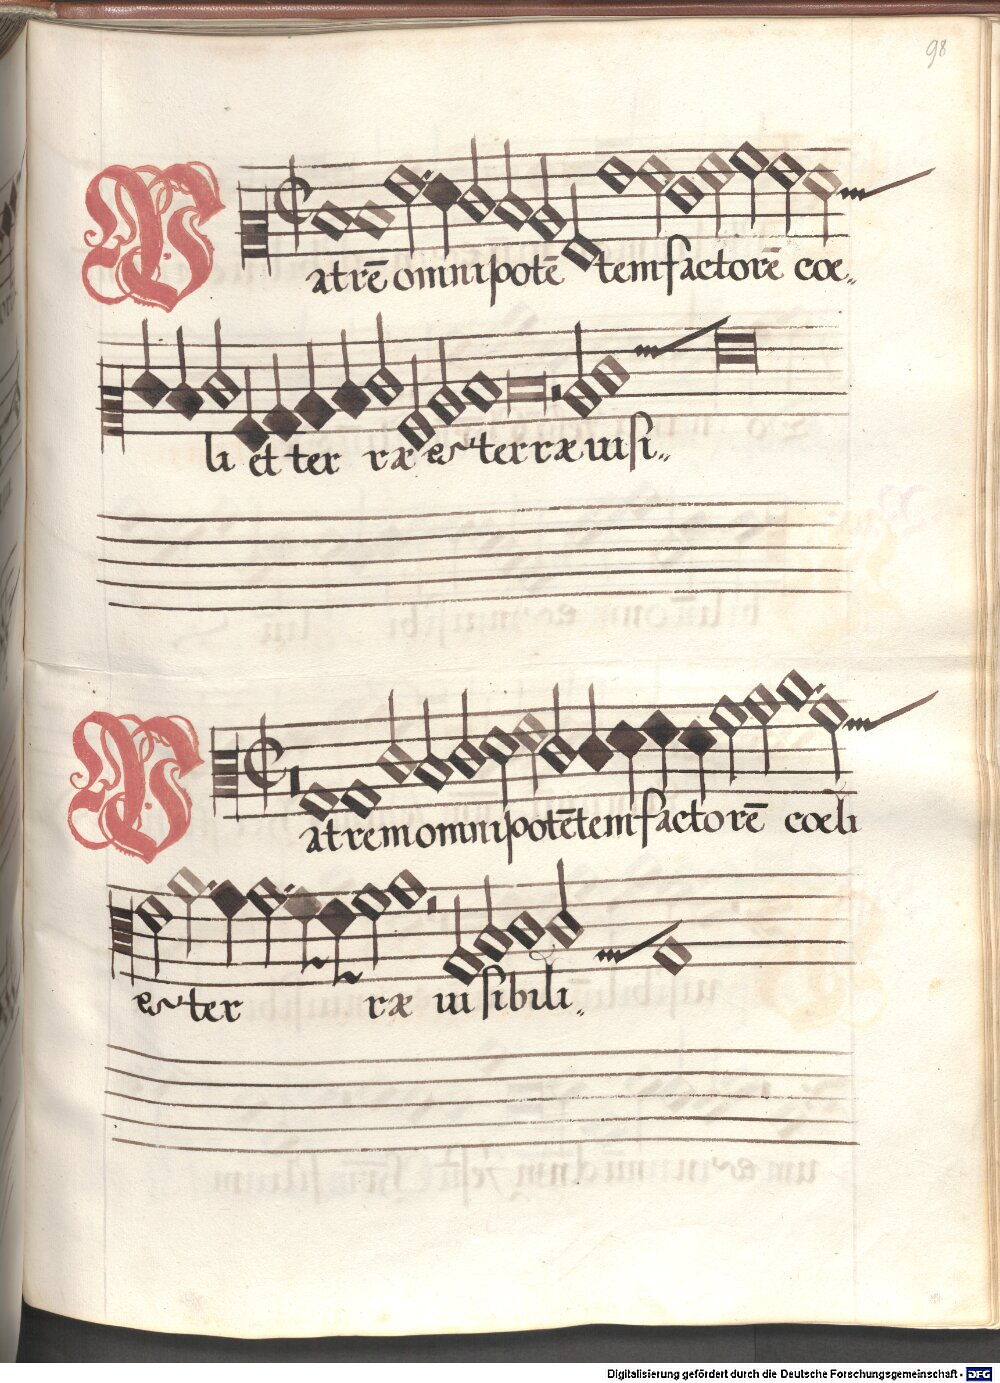 98
Patrē omnipotē tem factorē coe„
li et ter ræ et ter ræ uisi„
Patrem omnipotē tem factorē coeli
et ter ræ uisibili„
Digitalisierung gefördert durch die Deutsche Forschungsgemeinschaft - DFG